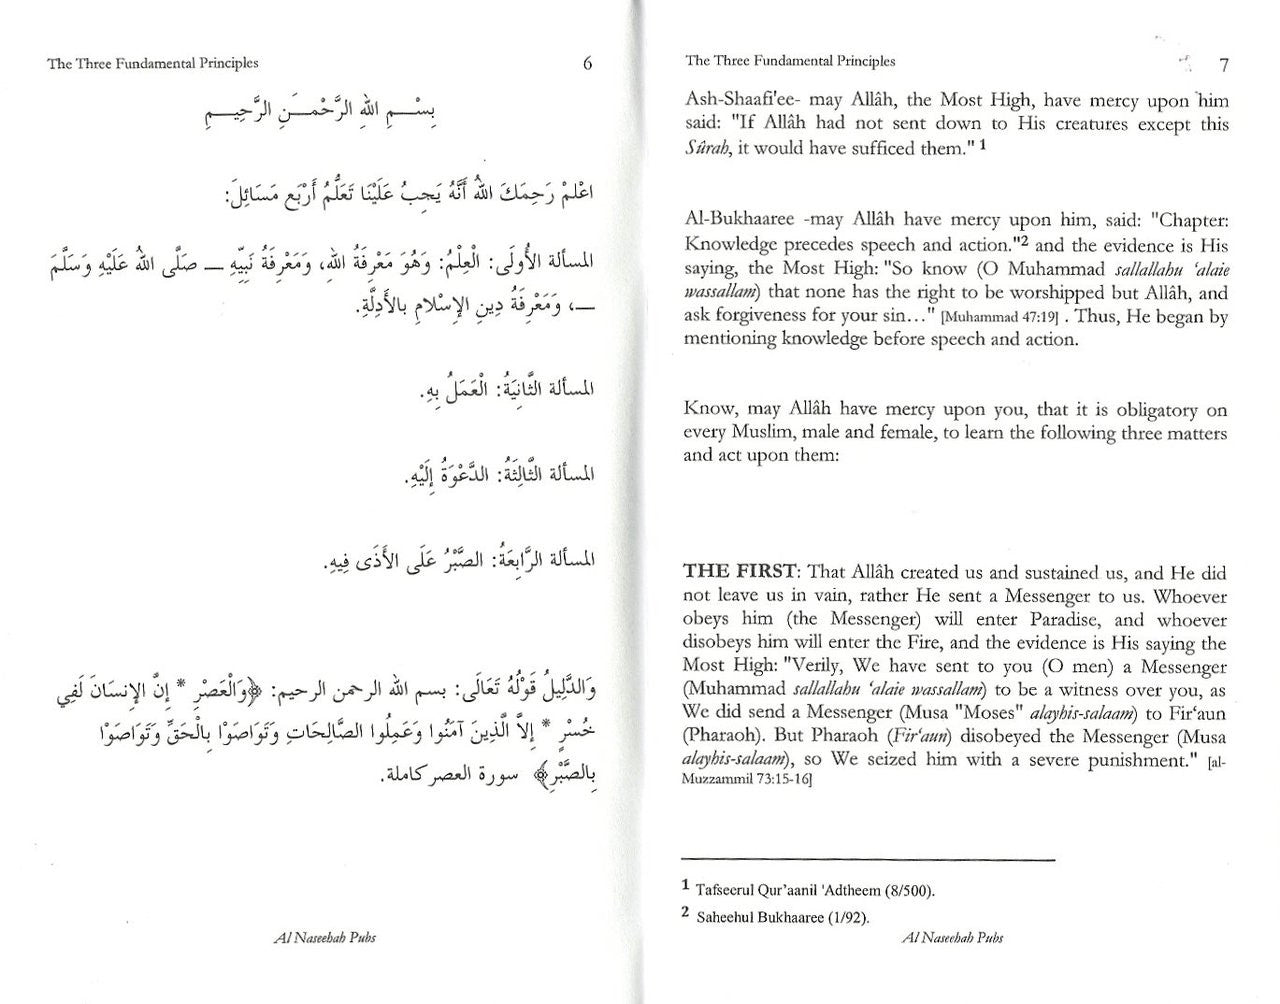 The Three Fundamental Principles 6
بِسْــمِ اللهِ الرَّحْمــَنِ الرَّحِيــمِ
اعْلمْ رَحِمَكَ اللهُ أَنَّهُ يَجِبُ عَلَيْنَا تَعَلُّمُ أَرْبَع مَسَائِلَ:
المسألة الأُولَى: الْعِلْمُ: وَهُوَ مَعْرِفَةُ اللهِ، وَمَعْرِفَةُ نَبِيِّهِ ــ صَلَّى اللهُ عَلَيْهِ وَسَلَّمَ
ــ، وَمَعْرِفَةُ دِينِ الإِسْلامِ بالأَدِلَّةِ.
المسألة الثَّانِيَةُ: الْعَمَلُ بِهِ.
المسألة الثَّالِثَةُ: الدَّعْوَةُ إِلَيْهِ.
المسألة الرَّابِعَةُ: الصَّبْرُ عَلَى الأَذَى فِيهِ.
وَالدَّلِيلُ قَوْلُهُ تَعَالَى: بسم الله الرحمن الرحيم: ﴿وَالْعَصْرِ * إِنَّ الإِنسَانَ لَفِي
خُسْرٍ * إِلاَّ الَّذِينَ آمَنُوا وَعَمِلُوا الصَّالِحَاتِ وَتَوَاصَوْا بِالْحَقِّ وَتَوَاصَوْا
بِالصَّبْرِ﴾ سورة العصر كاملة.
Al Naseehah Pubs
The Three Fundamental Principles 7
Ash-Shaafi'ee- may Allâh, the Most High, have mercy upon him
said: "If Allâh had not sent down to His creatures except this
Sûrah, it would have sufficed them." 1
Al-Bukhaaree -may Allâh have mercy upon him, said: "Chapter:
Knowledge precedes speech and action."2 and the evidence is His
saying, the Most High: "So know (O Muhammad sallallahu ‘alaie
wassallam) that none has the right to be worshipped but Allâh, and
ask forgiveness for your sin…" [Muhammad 47:19] . Thus, He began by
mentioning knowledge before speech and action.
Know, may Allâh have mercy upon you, that it is obligatory on
every Muslim, male and female, to learn the following three matters
and act upon them:
THE FIRST: That Allâh created us and sustained us, and He did
not leave us in vain, rather He sent a Messenger to us. Whoever
obeys him (the Messenger) will enter Paradise, and whoever
disobeys him will enter the Fire, and the evidence is His saying the
Most High: "Verily, We have sent to you (O men) a Messenger
(Muhammad sallallahu ‘alaie wassallam) to be a witness over you, as
We did send a Messenger (Musa "Moses" alayhis-salaam) to Fir‘aun
(Pharaoh). But Pharaoh (Fir‘aun) disobeyed the Messenger (Musa
alayhis-salaam), so We seized him with a severe punishment." [al-
Muzzammil 73:15-16]
1 Tafseerul Qur’aanil 'Adtheem (8/500).
2 Saheehul Bukhaaree (1/92).
Al Naseehah Pubs